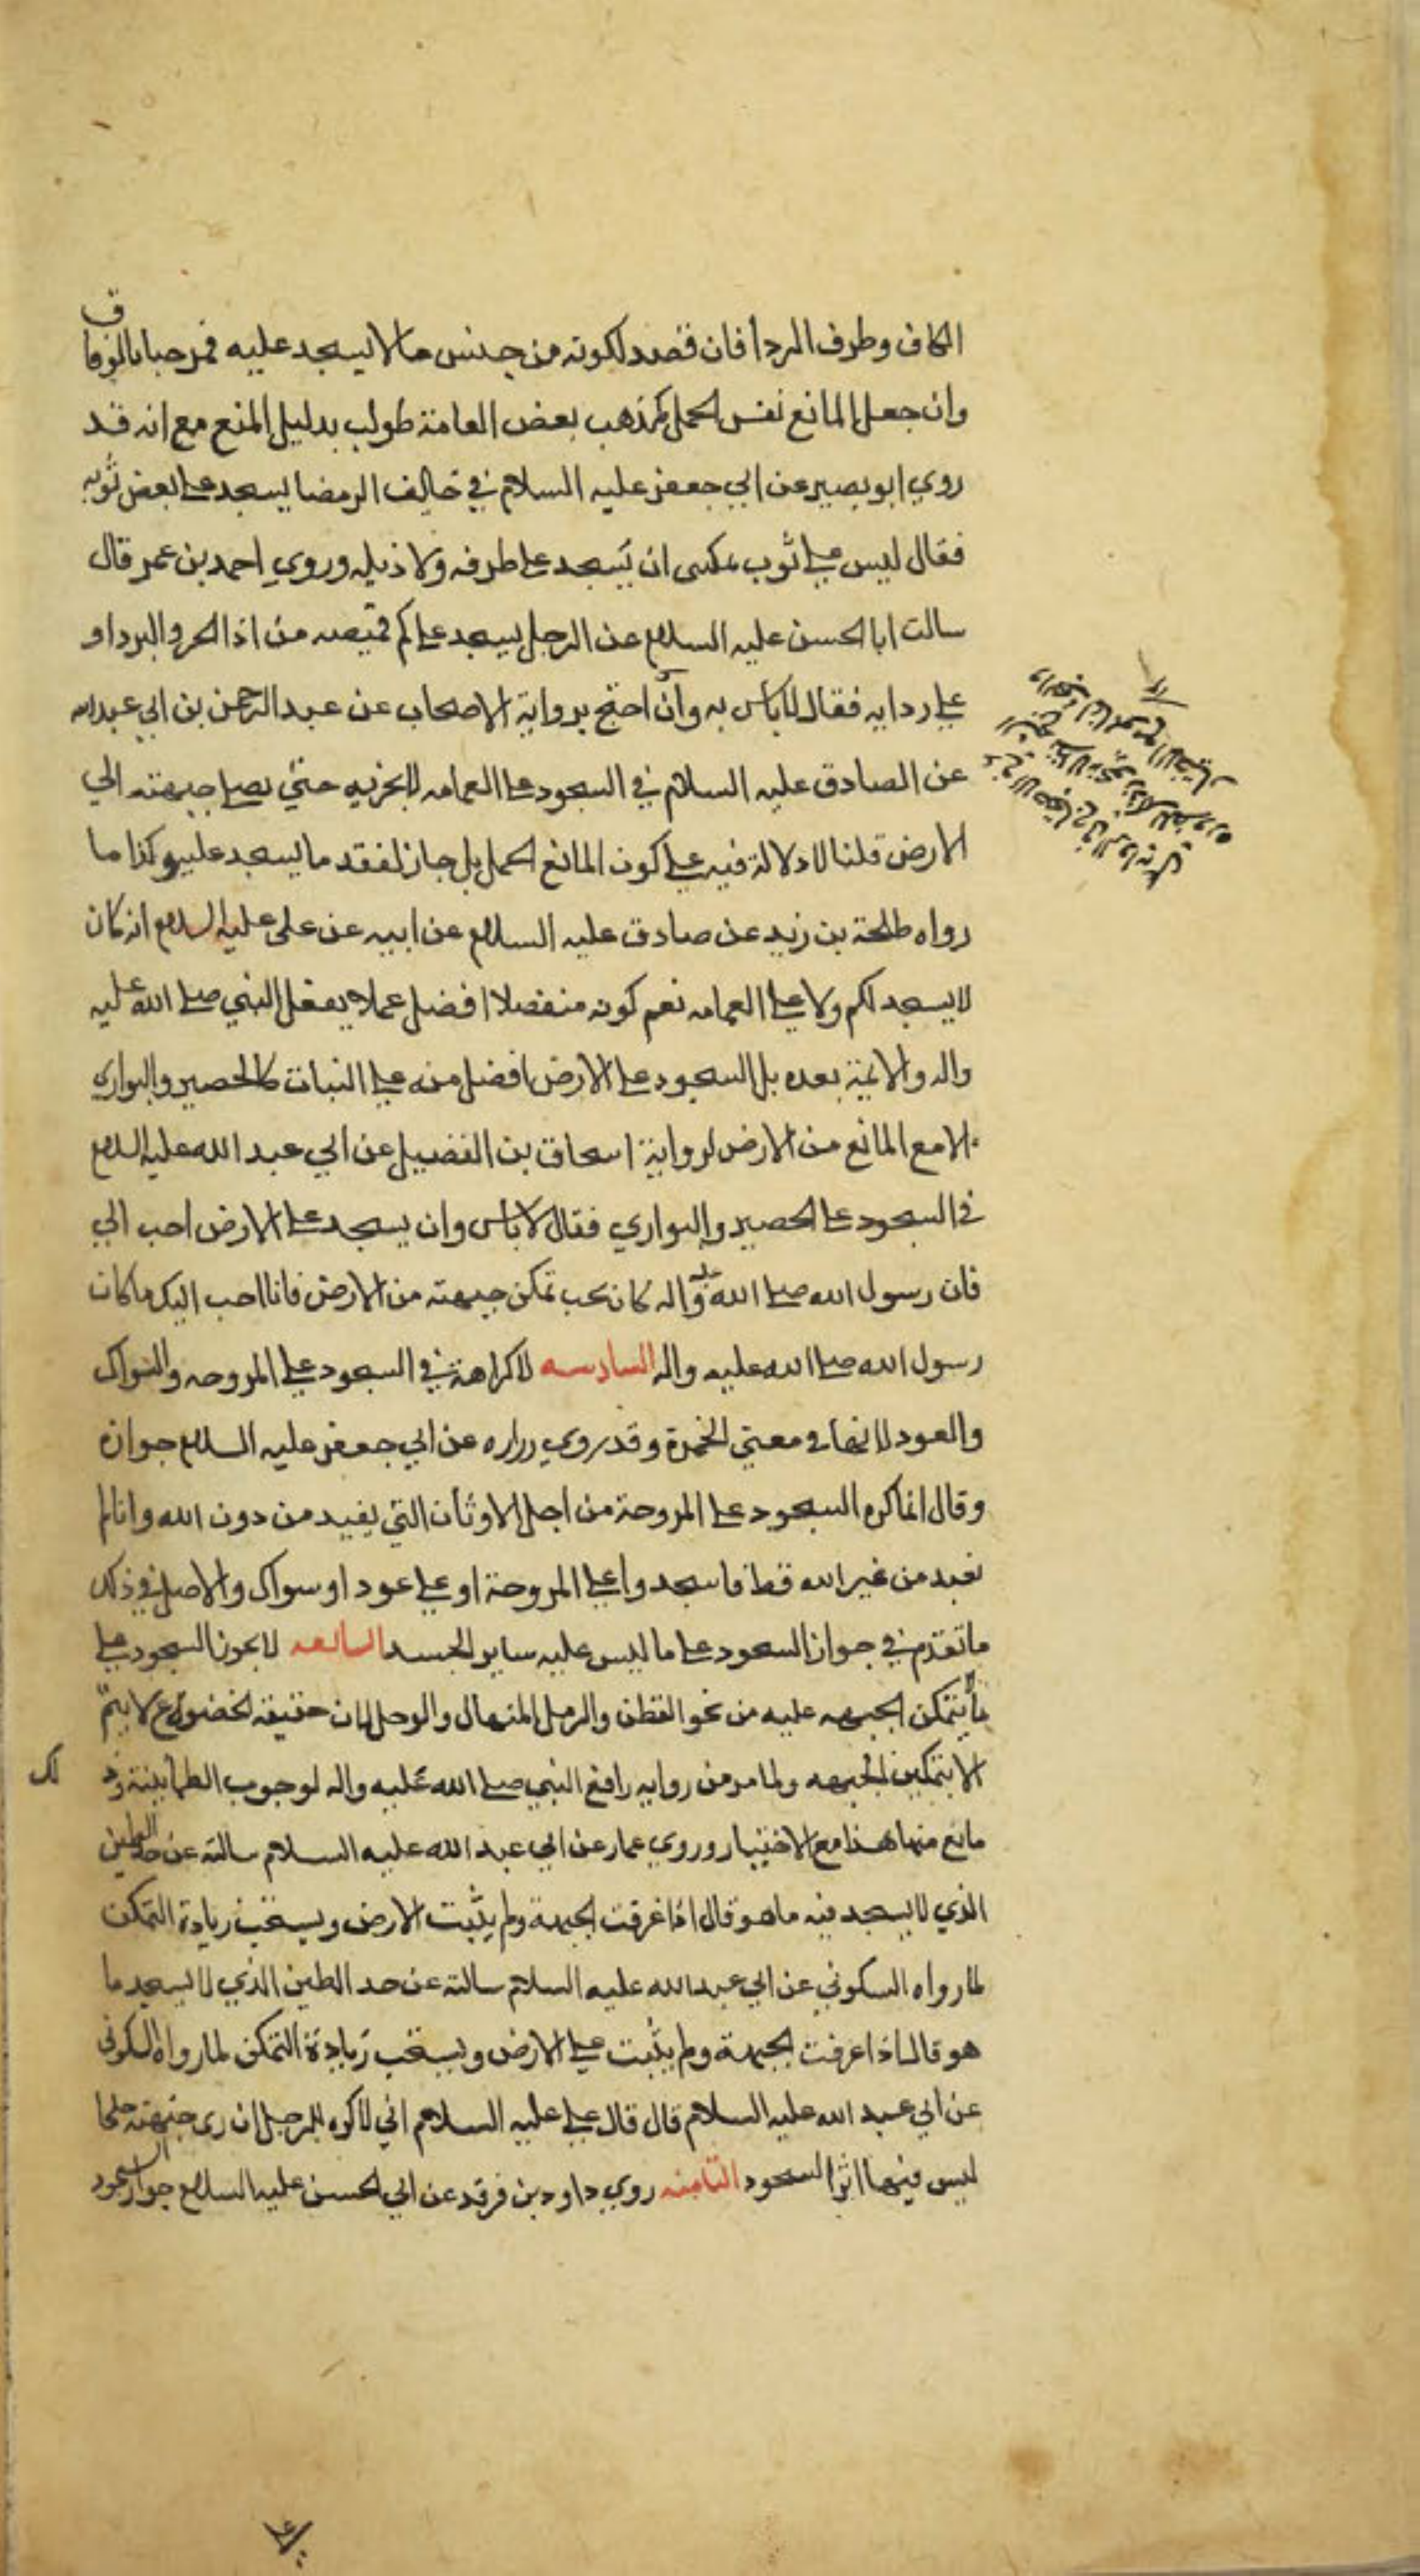 الكاف وطرف الردا فان قصد لكونه من جنس ما لا يسجد عليه فمرحبا بالوفاق
وان جعل المانع نفس الحمل كمذهب بعض العامة طولب بدليل المنع مع انه قد
روي ابو بصير عن ابي جعفر عليه السلام في خايف الرمضا يسجد على بعض ثوبه
فقال ليس على ثوب يمكنى ان يسجد على طرفه ولا ذيله وروي احمد بن عمر قال
سالت ابا الحسن عليه السلام عن الرجل يسجد على كم قميصه من اذا الحر والبرد او
على ردايه فقال لا باس به وان احتج برواية الاصحاب عن عبد الرحمن بن ابي عبد الله
عن الصادق عليه السلام في السجود على العمامه لا يجزيه حتي يصل جبهته الي
الارض قلنا لا دلالة فيه على كون المانع الحمل بل جاز لفقد ما يسجد عليه وكذا ما
رواه طلحة بن زيد عن صادق عليه السلام عن ابيه عن على عليه السلام انه كان
لا يسجد لكم ولا على العمامه نعم كونه منفصلا افضل عملا بفعل النبي صلى الله عليه
واله والايمة بعده بل السجود على الارض افضل منه على النبات كالحصير والبواري
الا مع المانع من الارض لرواية اسحاق بن الفضيل عن ابي عبد الله عليه السلام
في السجود على الحصير والبواري فقال لا باس وان يسجد على الارض احب الي
فان رسول الله صلى الله عليه واله كان يحب تمكن جبهته من الارض فانا احب اليك ما كان
رسول الله صلى الله عليه واله السادسه لا كراهة في السجود على المروحه والسواك
والعود لانها في معني الخمرة وقد روي زراره عن ابي جعفر عليه السلام جوازه
وقال انما كره السجود على المروحة من اجل الاوثان التي يعبد من دون الله وانا لم
نعبد من غير الله قط فاسجدوا على المروحة او على عود او سواك والاصل في ذلك
ما تقدم في جواز السجود على ما ليس عليه ساير الجسد السابعه لا يجوز السجود على
ما يتمكن الجبهه عليه من نحو القطن والرمل المنهال والوحل لان حقيقة الخضوع لا يتم
الا بتمكين الجبهه ولما مر من روايه رافع النبي صلى الله عليه واله لوجوب الطمانينة وذلك
مانع منها هذا مع الاختيار وروي عمار عن ابي عبد الله عليه السلام سالته عن حد الطين
الذي لا يسجد فيه ما هو قال اذا غرقت الجبهة ولم يثبت الارض ويستحب زيادة التمكن
لما رواه السكوني عن ابي عبد الله عليه السلام سالته عن حد الطين الذي لا يسجد ما
هو قال اذا غرقت الجبهة ولم يثبت على الارض ويستحب زيادة التمكن لما رواه السكوني
عن ابي عبد الله عليه السلام قال قال على عليه السلام اني لاكره للرجل ان رى جبهته جلحا
ليس فيها اثر السجود الثامنه روي داود بن فرقد عن ابي الحسن عليه السلام جواز السجود